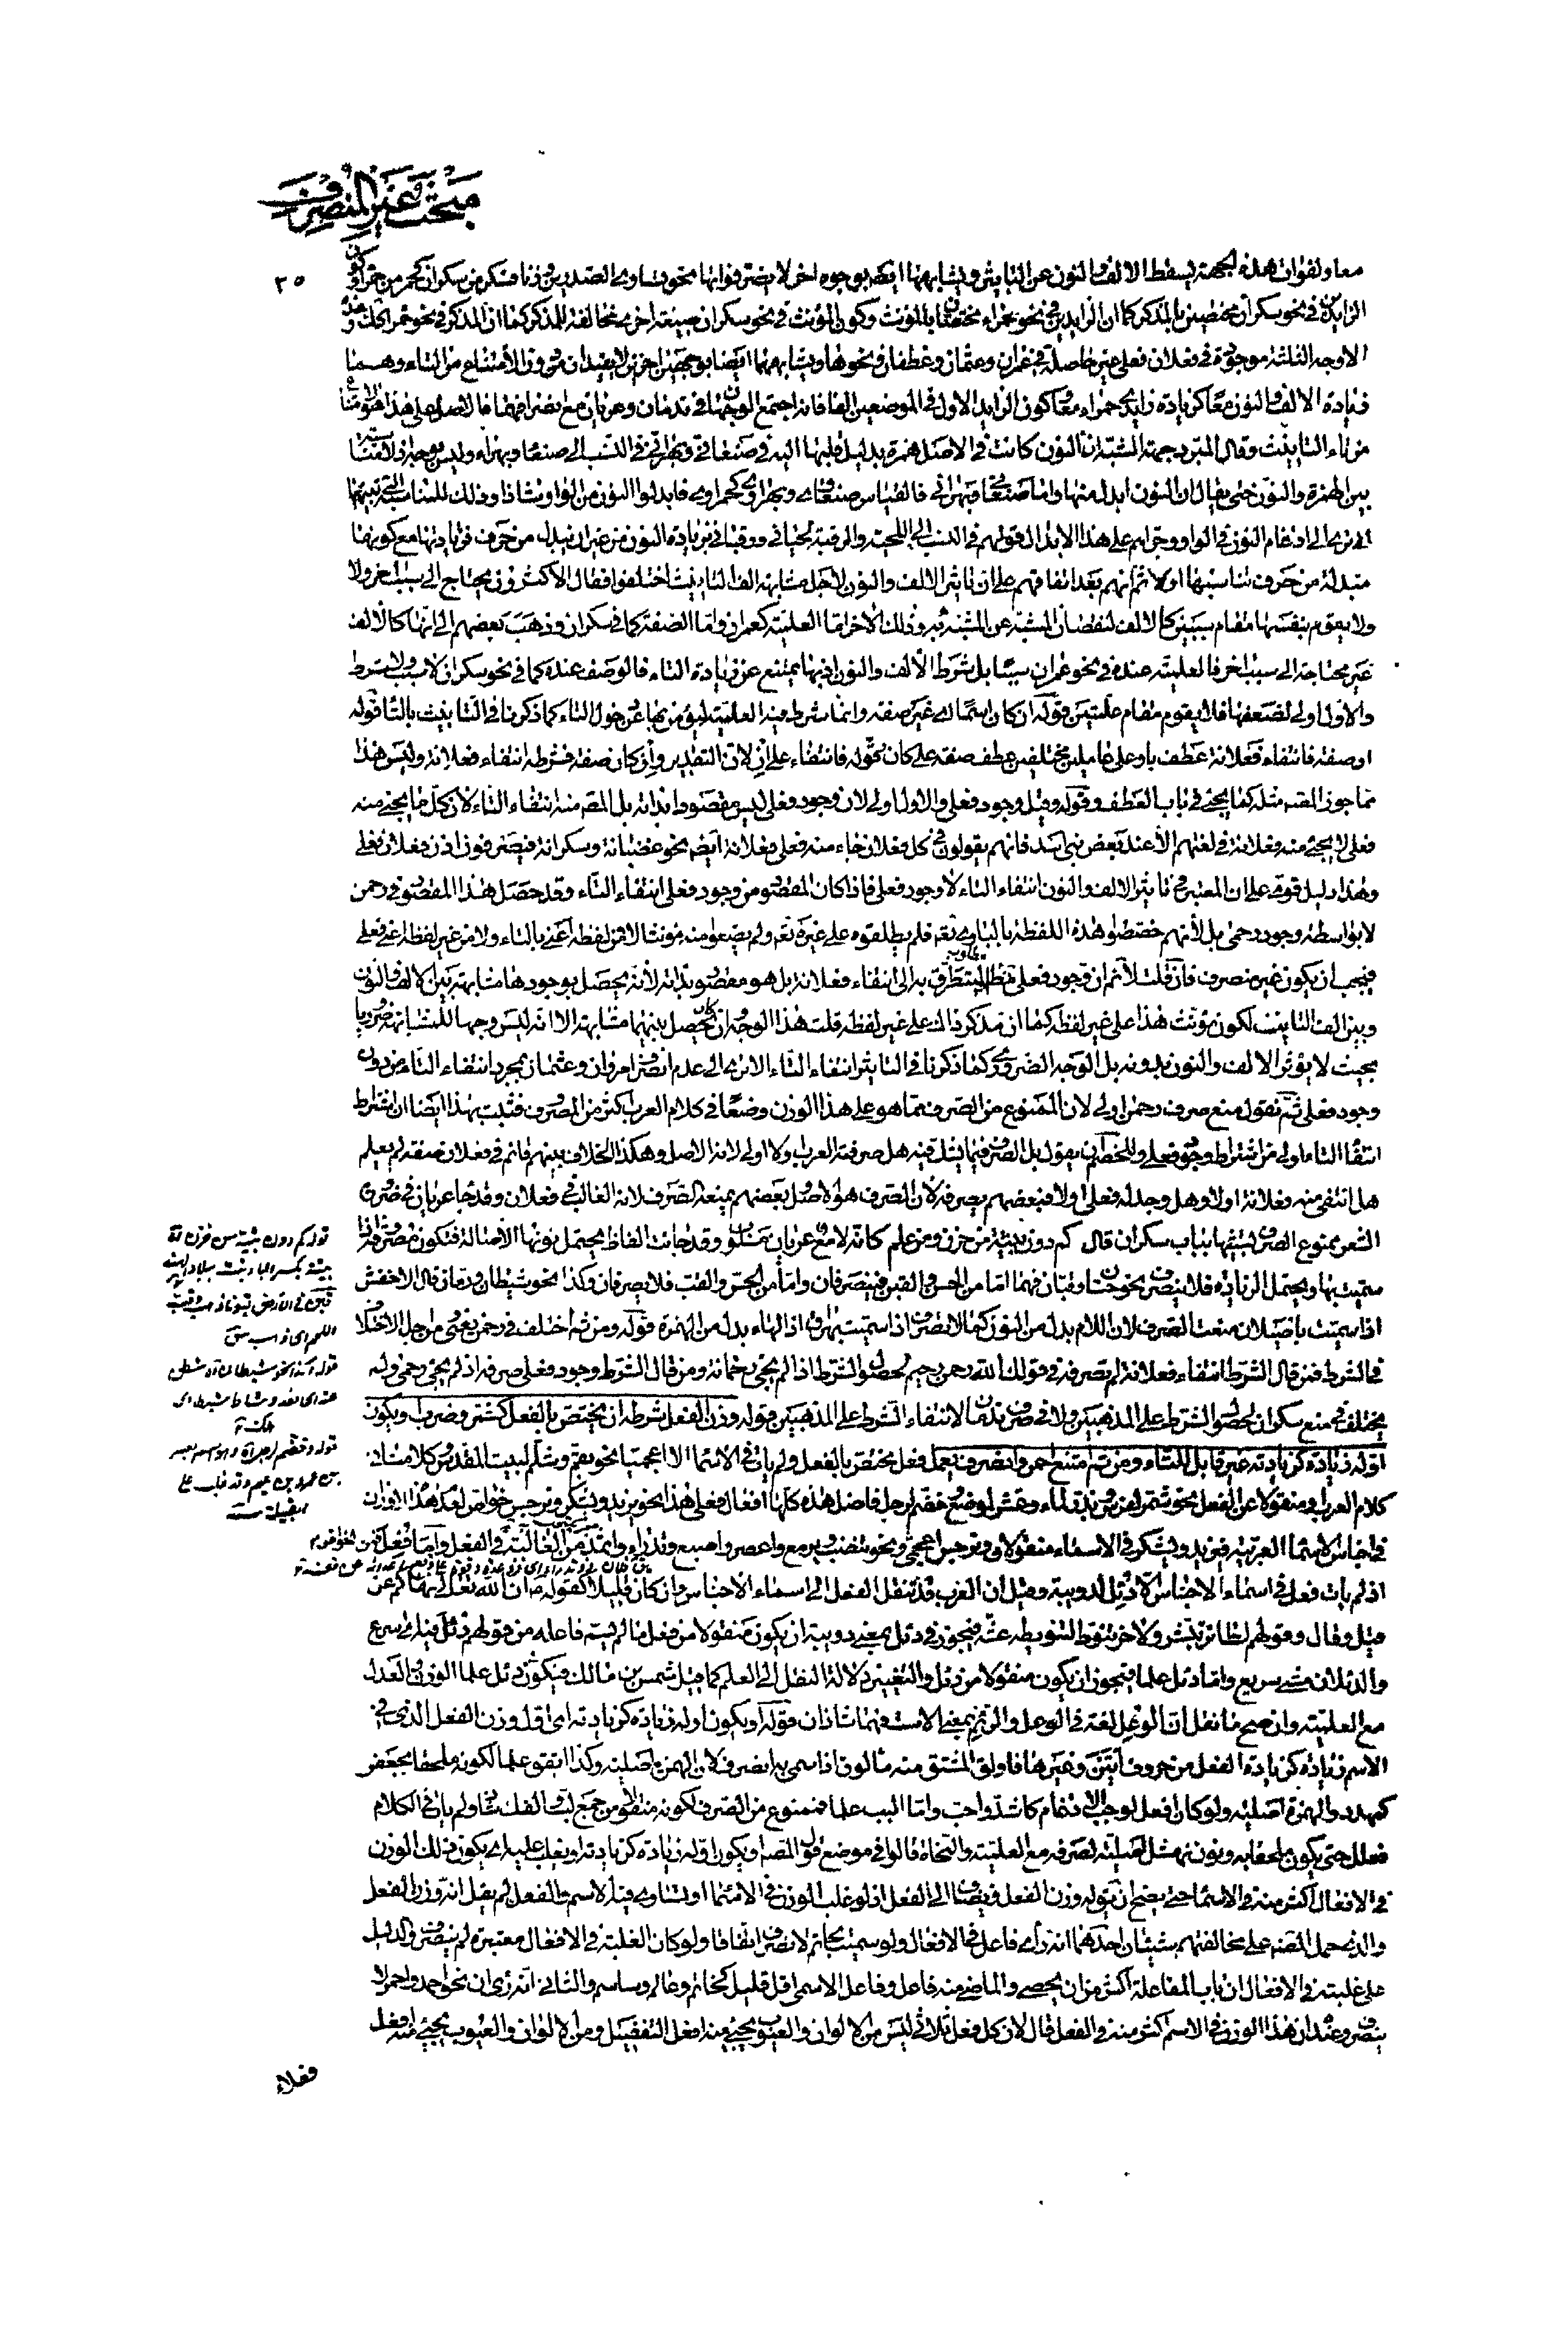 مبحث غير المنصرف
٣٥
معا ولفوات هذه الجهة يسقط الالف والنون عن التاثير ويشابهها ايضا بوجوه اخر لا يضر فواتها نحو تساوى الصدرين وزنا فسكر من سكران كحمر من حمراء وكون
الزايدين في نحو سكران مختصين بالمذكر كما ان الزايدين في نحو حمراء مختصان بالمؤنث وكون المؤنث في نحو سكران صيغة اخرى مخالفة للمذكر كما ان المذكر في نحو حمراء كذلك وهذه
الاوجه الثلثة موجودة في فعلان فعلى غير حاصلة في عمران وعثمان وغطفان ونحوها ويشابهها ايضا بوجهين اخرين لا يفيدان من دون الامتناع من التاء وهما
زيادة الالف والنون معا كزيادة زايدى حمراء معا وكون الزايد الاول في الموضعين الفا فانه اجتمع الوجهان في ندمان وعريان مع انصرافهما فالاصل على هذا هو الامتناع
من تاء التانيث وقال المبرد جهة الشبه ان النون كانت في الاصل همزة بدليل قلبها اليه في صنعانى وبهرانى في النسب الى صنعاء وبهراء وليس بوجه اذ لا مناسبة
بين الهمزة والنون حتى يقال ان النون ابدل منها واما صنعانى وبهرانى فالقياس صنعاوى وبهراوى كحمراوى فابدلوا النون من الواو شاذا وذلك للمناسبة التى بينهما
الا ترى الى ادغام النون في الواو وجراهم على هذا الابدال قولهم في النسب الى اللحية والرقبة لحيانى ورقبانى بزيادة النون من غير ان تبدل من حرف فزيادتها مع كونها
مبدلة من حرف تناسبها اولى ثم انهم بعد اتفاقهم على ان تاثير الالف والنون لاجل مشابهة الف التانيث اختلفوا فقال الاكثرون يحتاج الى سبب اخر ولا
ولا يقوم بنفسها مقام سببين كالالف لنقصان المشبه عن المشبه به وذلك الاخر اما العلمية كعمران واما الصفة كما في سكران وذهب بعضهم الى انها كالالف
غير محتاجة الى سبب اخر فالعلمية عنده في نحو عمران ليست سببا بل شرط الالف والنون اذ بها يمتنع عن زيادة التاء فالوصف عنده كما في نحو سكران لا سبب ولا شرط
والاول اولى لضعفها فلا يقوم مقام علتين قوله ان كان اسما اى غير صفة وانما شرط فيه العلمية ليؤمن بها عن دخول التاء كما ذكرنا في التانيث بالتاء قوله
او صفة فانتفاء فعلانة عطف باو على عاملين مختلفين عطف صفة على كان نحو قوله فانتفاء على ان لان التقدير وان كان صفة فشرطه انتفاء فعلانة وليس هذا
مما جوز المصنف مثله كما يجئ في باب العطف وقوله وقيل وجود فعلى والاول اولى لان وجود فعلى ليس مقصودا لذاته بل المقصود منه انتفاء التاء لان كل ما يجئ منه
فعلى لا يجئ منه فعلانة في لغتهم الا عند بعض بنى اسد فانهم يقولون في كل فعلان جاء منه فعلى فعلانة ايضا نحو غضبانة وسكرانة فيصرفون اذن فعلان فعلى
وهذا دليل قوى على ان المعتبر في تاثير الالف والنون انتفاء التاء لا وجود فعلى فاذا كان المقصود من وجود فعلى انتفاء التاء وقد حصل هذا المقصود في رحمن
لا بواسطة وجود رحمى بل لانهم خصصوا هذه اللفظة بالبارى تعالى فلم يطلقوه على غيره تعالى ولم يضعوا منه مؤنثا لا من لفظه اعنى بالتاء ولا من غير لفظه اعنى فعلى
فيجب ان يكون غير منصرف فان قلت لا نسلم ان وجود فعلى مطلوب ليتطرق به الى انتفاء فعلانة بل هو مقصود لذاته لانه يحصل بوجودها مشابهة بين الالف والنون
وبين الف التانيث لكون مؤنث هذا على غير لفظه كما ان مذكر ذاك على غير لفظه قلت هذا الوجه وان كان يحصل بينهما مشابهة الا انه ليس وجها للمشابهة ضروريا
بحيث لا يؤثر الالف والنون بدونه بل الوجه الضرورى كما ذكرنا في التاثير انتفاء التاء الا ترى الى عدم انصراف مروان وعثمان بمجرد انتفاء التاء من دون
وجود فعلى ثم نقول منع صرف رحمن اولى لان الممنوع من الصرف مما هو على هذا الوزن وصفا في كلام العرب اكثر من المصروف فثبت بهذا ايضا ان اشتراط
انتفاء التاء اولى من اشتراط وجود فعلى وللخصم ان يقول بل الصرف فيما يشك فيه هل صرفته العرب ولا اولى لانه الاصل وهكذا الخلاف بينهم قائم في فعلان صفة لم يعلم
هل انتفى منه فعلانة اولا وهل وجد له فعلى اولا فبعضهم يصرفه لان الصرف هو الاصل وبعضهم يمنعه الصرف لانه الغالب في فعلان وقد جاء عريان في ضرورة
الشعر ممنوع الصرف لشبهها بباب سكران قال كم دون بيشة من خرق ومن علم كانه لامع عريان مسلوب وقد جاءت الفاظ يحتمل نونها الاصالة فتكون مصروفة اذا
سميت بها ويحتمل الزيادة فلا ينصرف نحو حسان وقبان فهما اما من الحسن والقبن فينصرفان واما من الحس والقب فلا ينصرفان وكذا نحو شيطان ورمان قال الاخفش
اذا سميت باصيلال منعت الصرف لان اللام بدل من النون كما لا ينصرف اذا سميت بهراق اذ الهاء بدل من الهمزة قوله ومن ثم اختلف في رحمن يعنى من اجل الاختلاف
في الشرط فمن قال الشرط انتفاء فعلانة لم يصرفه في قولك الله رحمن رحيم لحصول الشرط اذ لم يجئ رحمانة ومن قال الشرط وجود فعلى صرفه اذ لم يجئ رحمى ولم
يختلف في منع سكران لحصول الشرط على المذهبين ولا في صرف ندمان لانتفاء الشرط على المذهبين قوله وزن الفعل شرطه ان يختص بالفعل كشمر وضرب او يكون
اوله زيادة كزيادته غير قابل للتاء ومن ثم امتنع احمر وانصرف يعمل فعل مختص بالفعل ولم يات في الاسماء الا اعجميا نحو بقم وشلم لبيت المقدس كلاما
كلام العرب ومنقولا عن الفعل نحو شمر لفرس وبذر لماء وعثر لموضع وخضم لرجل فاصل هذه كلها افعال فعلى هذا نحو يزيد ويشكر ونرجس خواص لعد هذا الاوزان
اذ لم يات فعل في اسماء الاجناس الا دئل لدويبة وقيل ان العرب قد تنقل الفعل الى اسماء الاجناس وان كان قليلا كقوله ان الله تعالى نهاكم عن
قيل وقال وقولهم لطائر تبشر ولاخر تنوط لتنويطه عشه فيجوز في دئل بمعنى دويبة ان يكون منقولا من فعل ما لم يسم فاعله من قولهم دئل فيه اى اسرع
والدئلان مشى سريع واما دئل علما فيجوز ان يكون منقولا من دئل والتغيير دلالة النقل الى العلم كما قيل شمس بن مالك فيكون في دئل علما الوزن والعدل
مع العلمية وان صح ما نقل ان الوعل لغة في الوعل والرئم بمعنى الاست فهما شاذان قوله او يكون اوله زيادة كزيادته اى اول وزن الفعل الذى في
الاسم زيادة كزيادة الفعل من حروف اتين وغيرها فاولق المشتق منه مالوق اذا سمى به انصرف لان الهمزة اصلية وكذا ايقق علما لكونه ملحقا بجعفر
كمهدد والهمزة اصلية ولو كان افعل لوجب الادغام كاشد واحب واما البب علما فممنوع من الصرف لكونه منقولا من جمع لب والفك شاذ ولم يات في الكلام
فعلل حتى يكون ملحقا به ونون نهشل اصلية لصرفه مع العلمية والنحاة قالوا في موضع قول المصنف او يكون اوله زيادة كزيادته او يغلب عليه اى يكون ذلك الوزن
في الافعال اكثر منه في الاسماء حتى يصح ان يقول وزن الفعل ويضاف الى الفعل اذ لو غلب الوزن في الاسماء او تساوى فيه الاسم والفعل لم يقل انه وزن الفعل
والذى حمل المصنف على مخالفتهم شيئان احدهما انه راى فاعل في الافعال ولو سميت بخاتم لانصرف اتفاقا ولو كان الغلبة في الافعال معتبرة لم ينصرف والدليل
على غلبته في الافعال ان باب المفاعلة اكثر من ان يحصى والماضى منه فاعل وفاعل الاسمى اقل قليل كخاتم وعالم وساسم والثانى انه راى ان نحو احمد واحمر لا
ينصرف وعنده ان هذا الوزن في الاسم اكثر منه في الفعل قال لان كل فعل ثلاثى ليس من الالوان والعيوب يجئ منه افعل التفضيل ومن الالوان والعيوب يجئ منه افعل
فعلاء
قوله كم دون بيشة من خرق